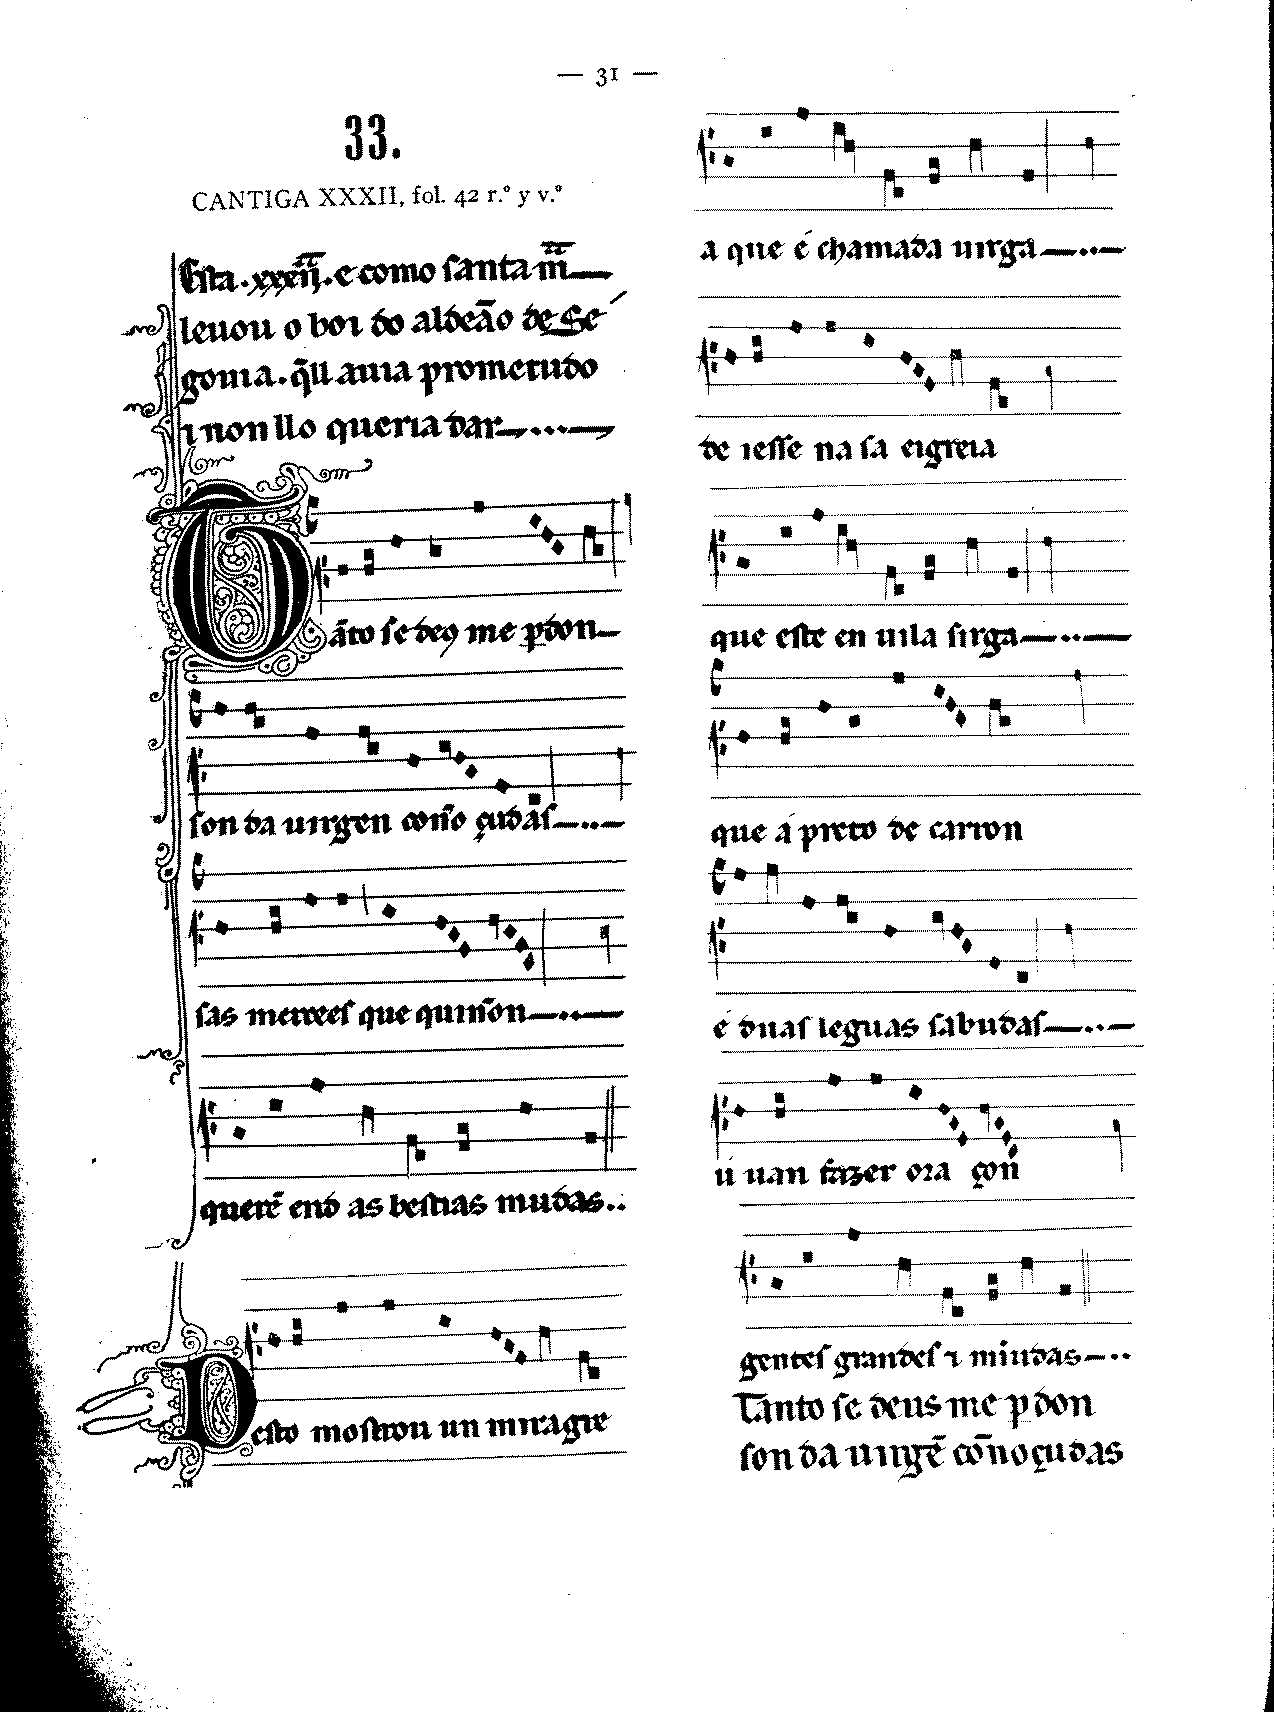 — 31 —
33.
CANTIGA XXXII, fol. 42 r.º y v.º
Esta .xxxii. e como santa m̃
leuou o boi do aldeão de Se
gouia. q̃ ll auia prometudo
⁊ non llo queria dar
Tãto se deꝯ me ꝑdon
son da uirgen coñoçudas
sas mercees que quiñon
querẽ end as bestias mudas..
Desto mostrou un miragre
a que é chamada uirga
de iesse na sa eigreia
que este en uila sirga
que á preto de carron
e duas leguas sabudas
ú uan fazer oraçon
gentes grandes ⁊ miudas
Tanto se deus me ꝑdon
son da uirgẽ coñoçudas